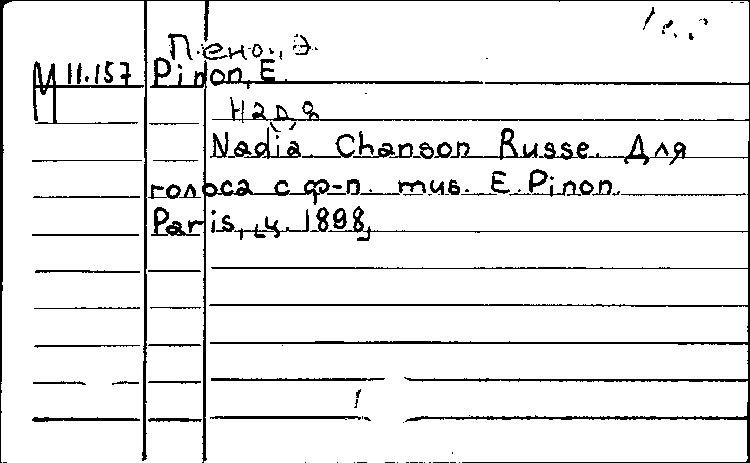 Пено., Э.
М 11.157 Pinon, E.
Надя
Nadia. Chanson Russe. Для
голоса с ф-п. mus. E. Pinon.
Paris, [ц. 1898]